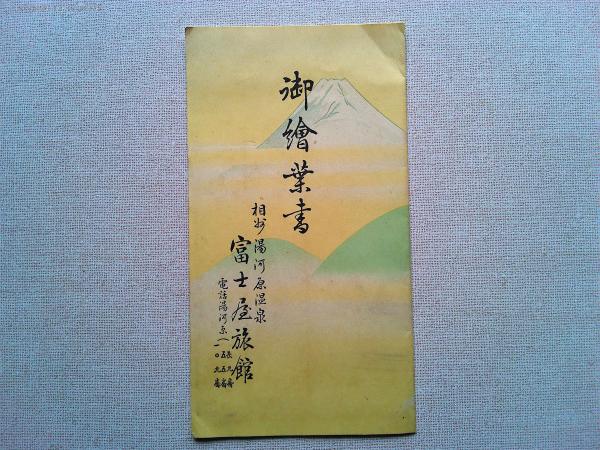 御繪葉書
相州湯河原温泉
富士屋旅館
電話湯河原